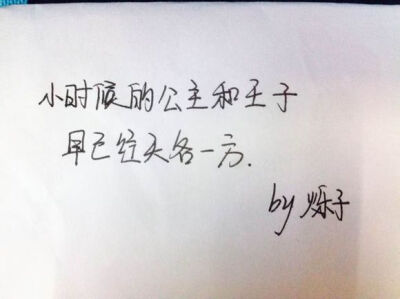 小时候的公主和王子
早已经天各一方.
by 烁子